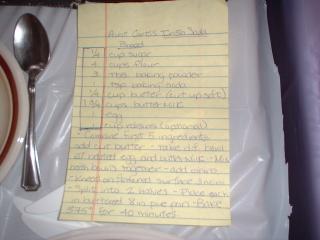 Aunt Carol's Irish Soda
Bread
1/4 cup sugar
4 cups flour
3 tbs baking powder
1 tsp baking soda
1/4 cup butter (cut up soft)
1 3/4 cups buttermilk
1 egg
1 cup raisins (optional)
- Combine first 5 ingredients
add cut butter - take diff. bowl
beated egg and buttermilk - Mix
both bowls together - add raisins
- Knead on floured surface 3 min
- Split into 2 halves - Place each
in buttered 8 in pie pan - Bake
375° for 40 minutes